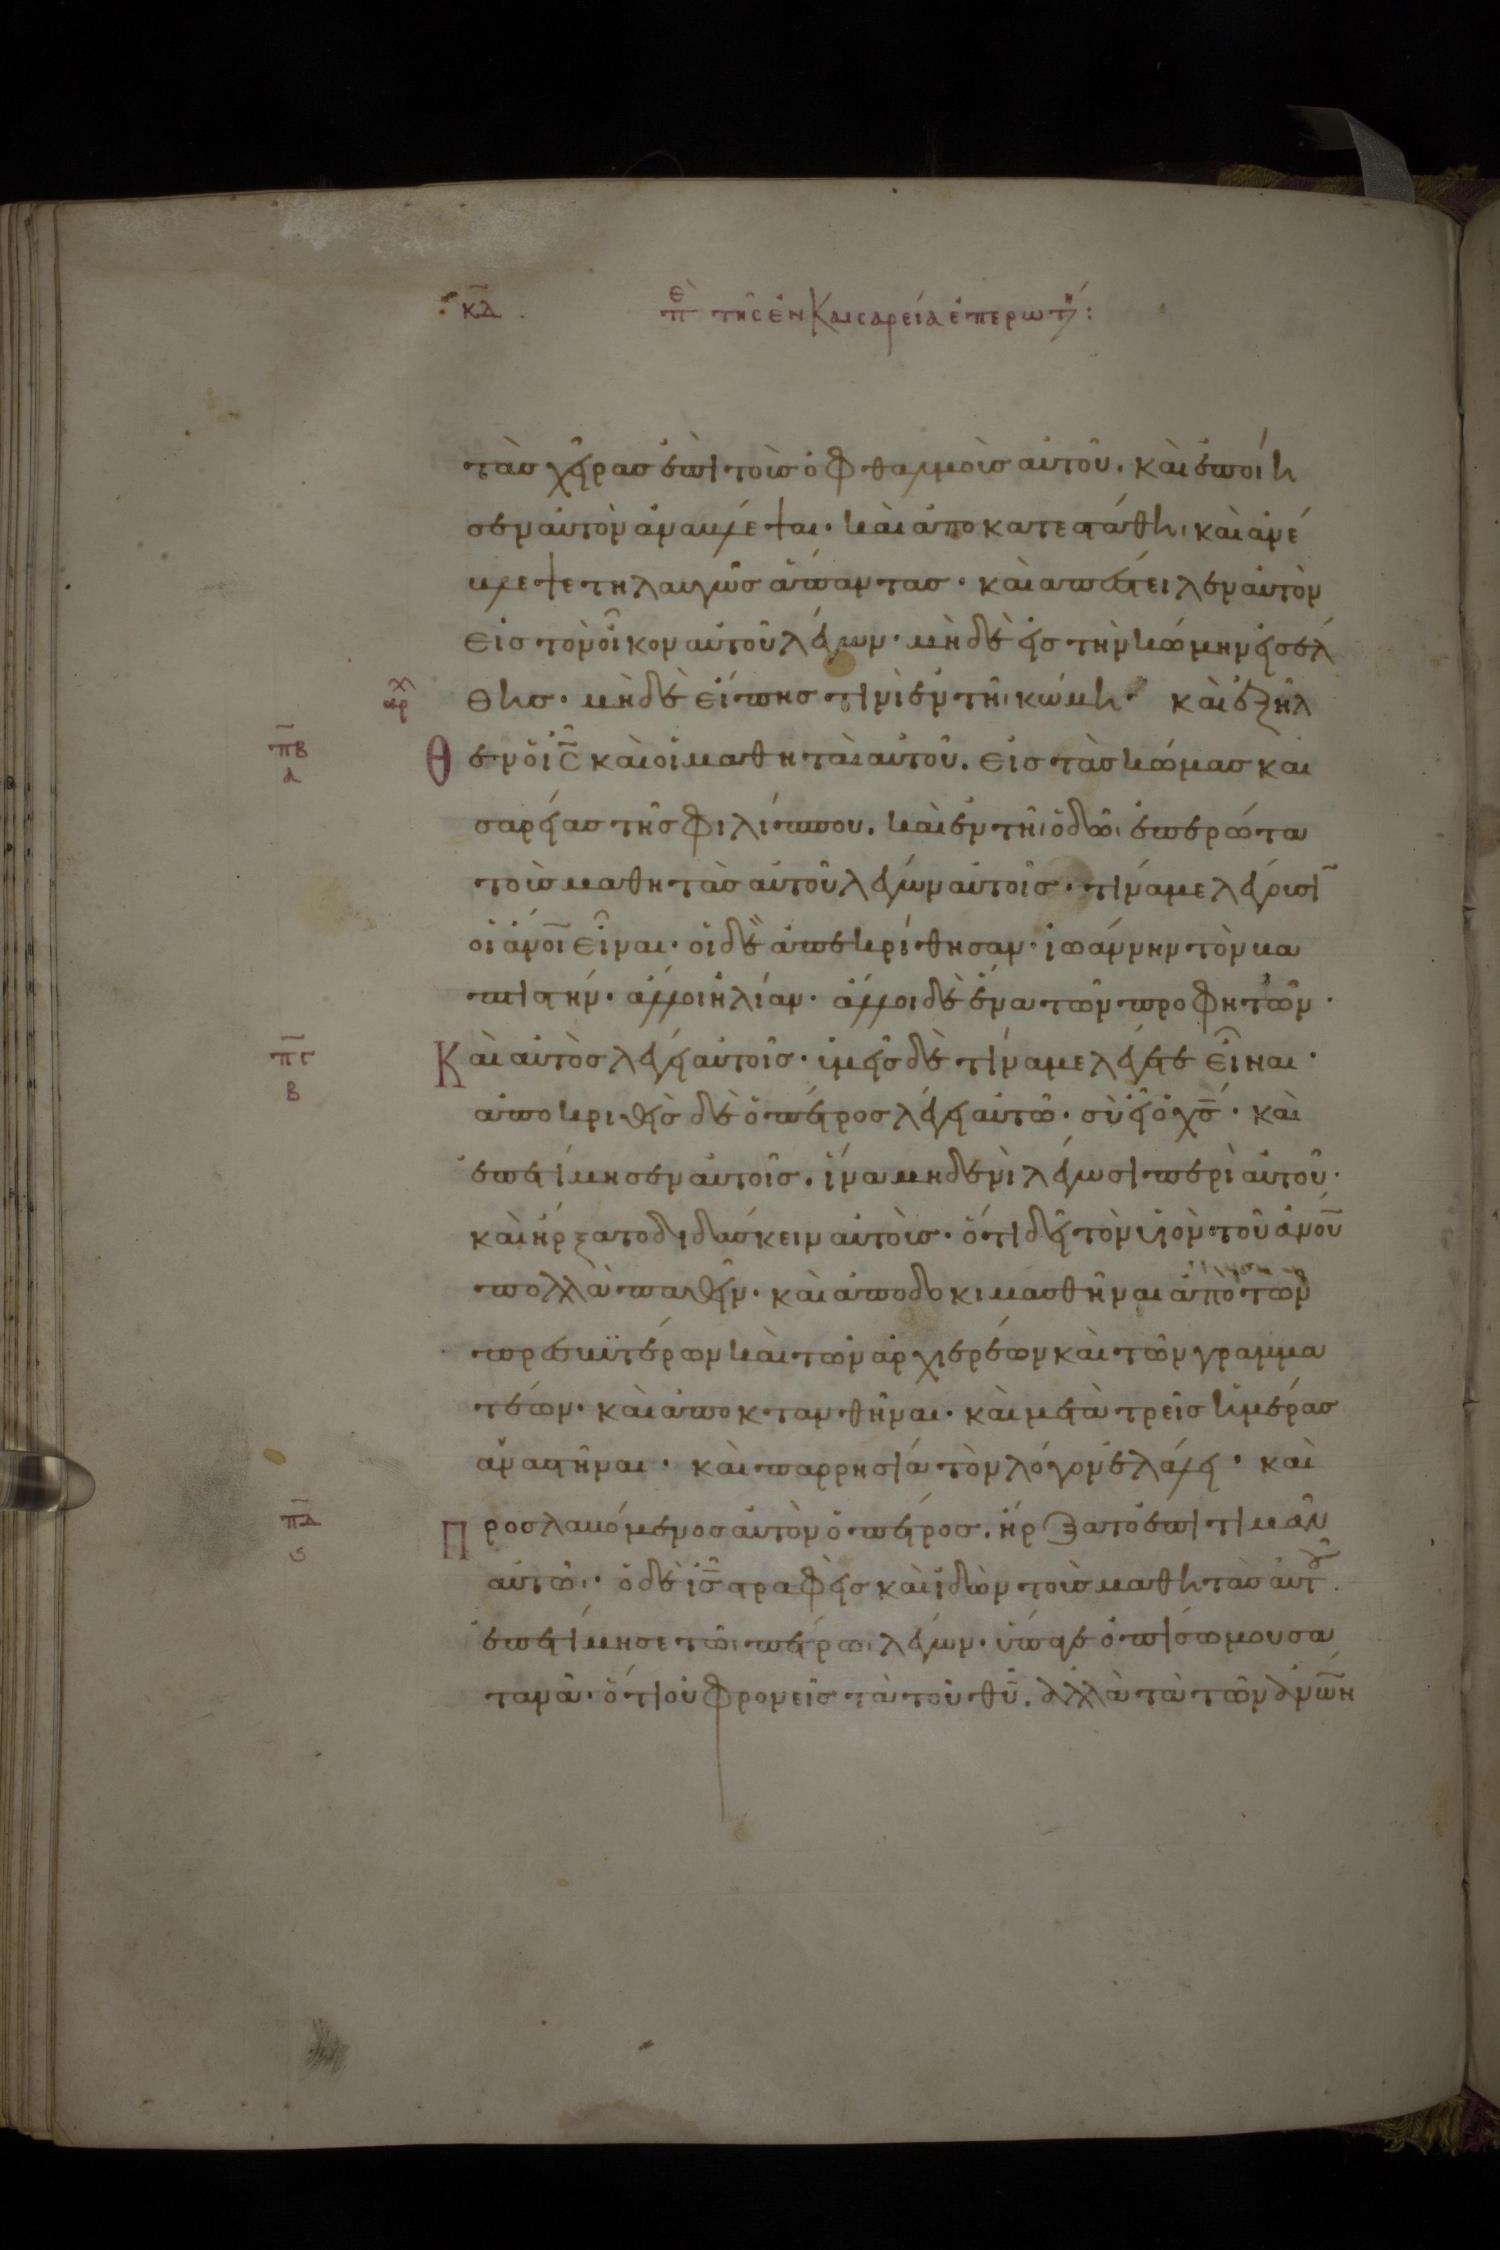 κδ πε τῆς ἐν Καισαρεία ἐπερωτή:
τὰσ χεῖρασ ἐπὶ τοὺσ ὀφθαλμοὺσ αὐτοῦ. καὶ ἐποίη
σεν αὐτὸν ἀναβλέψαι· καὶ ἀποκατεστάθη, καὶ ἀνέ
βλεψε τηλαυγῶσ ἅπαντασ· καὶ απέστειλεν αὐτὸν
εἰσ τὸν οἶκον αὐτοῦ λέγων· μὴδὲ εἰσ τὴν κώμην εἰσέλ
αρχ
θησ· μὴδὲ εἴπησ τινὶ ἐν τῆι κώμη· καὶ ἐξῆλ
πβ
α
Θ εν ὁ ἰς̅ καὶ οἱ μαθηταὶ αὐτοῦ. εἰσ τὰσ κώμασ και
σαρείασ τῆσ φιλίππου. καὶ ἐν τῆι ὁδῶι ἐπερώτα
τοὺσ μαθητὰσ αὐτοῦ λέγων αὐτοῖσ· τίνα με λέγουσι̅
οἱ ἀνο̅ι εἶναι· οἱ δὲ ἀπεκρίθησαν· ἰωάννην τὸν βα
πτιστήν· ἄλλοι ἠλίαν· ἄλλοι δὲ ἕνα τῶν προφητῶν·
πγ
β
Καὶ αὐτὸσ λέγει αὐτοῖσ· ὑμεῖσ δὲ τίνα με λέγετε εἶναι·
ἀποκριθεὶσ δὲ ὁ πέτροσ λέγει αὐτῶ· σὺ εἶ ὁ χς̅· καὶ
ἐπετίμησεν αὐτοῖσ. ἵνα μηδενὶ λέγωσι περὶ αὐτοῦ·
καὶ ἤρξατο διδάσκειν αὐτοὺσ· ὅτι δεῖ τὸν υἱὸν τοῦ ἀνο̅υ
πολλὰ παθεῖν· καὶ ἀποδοκιμασθῆναι ἀπὸ τῶν
πρεσβϋτέρων καὶ τῶν ἀρχιερέων καὶ τῶν γραμμα
τέων· καὶ ἀποκτανθῆναι· καὶ μετὰ τρεῖσ ἡμέρασ
ἀναστῆναι· καὶ παρρησία τὸν λόγον ἐλάλει· καὶ
πδ
ς
Προσλαβόμενοσ αὐτὸν ὁ πέτροσ. ἤρξατο ἐπιτιμᾶν
αὐτῶι· ὁ δὲ ἰς̅ στραφεὶσ καὶ ἰδὼν τοὺσ μαθητὰσ αὐτοῦ.
ἐπετίμησε τῶι πέτρωι λέγων· ὕπαγε ὀπίσω μου σα
τανᾶ· ὅτι οὐ φρονεῖσ τὰ τοῦ θυ̅. ἀλλὰ τὰ τῶν ἀνω̅ν